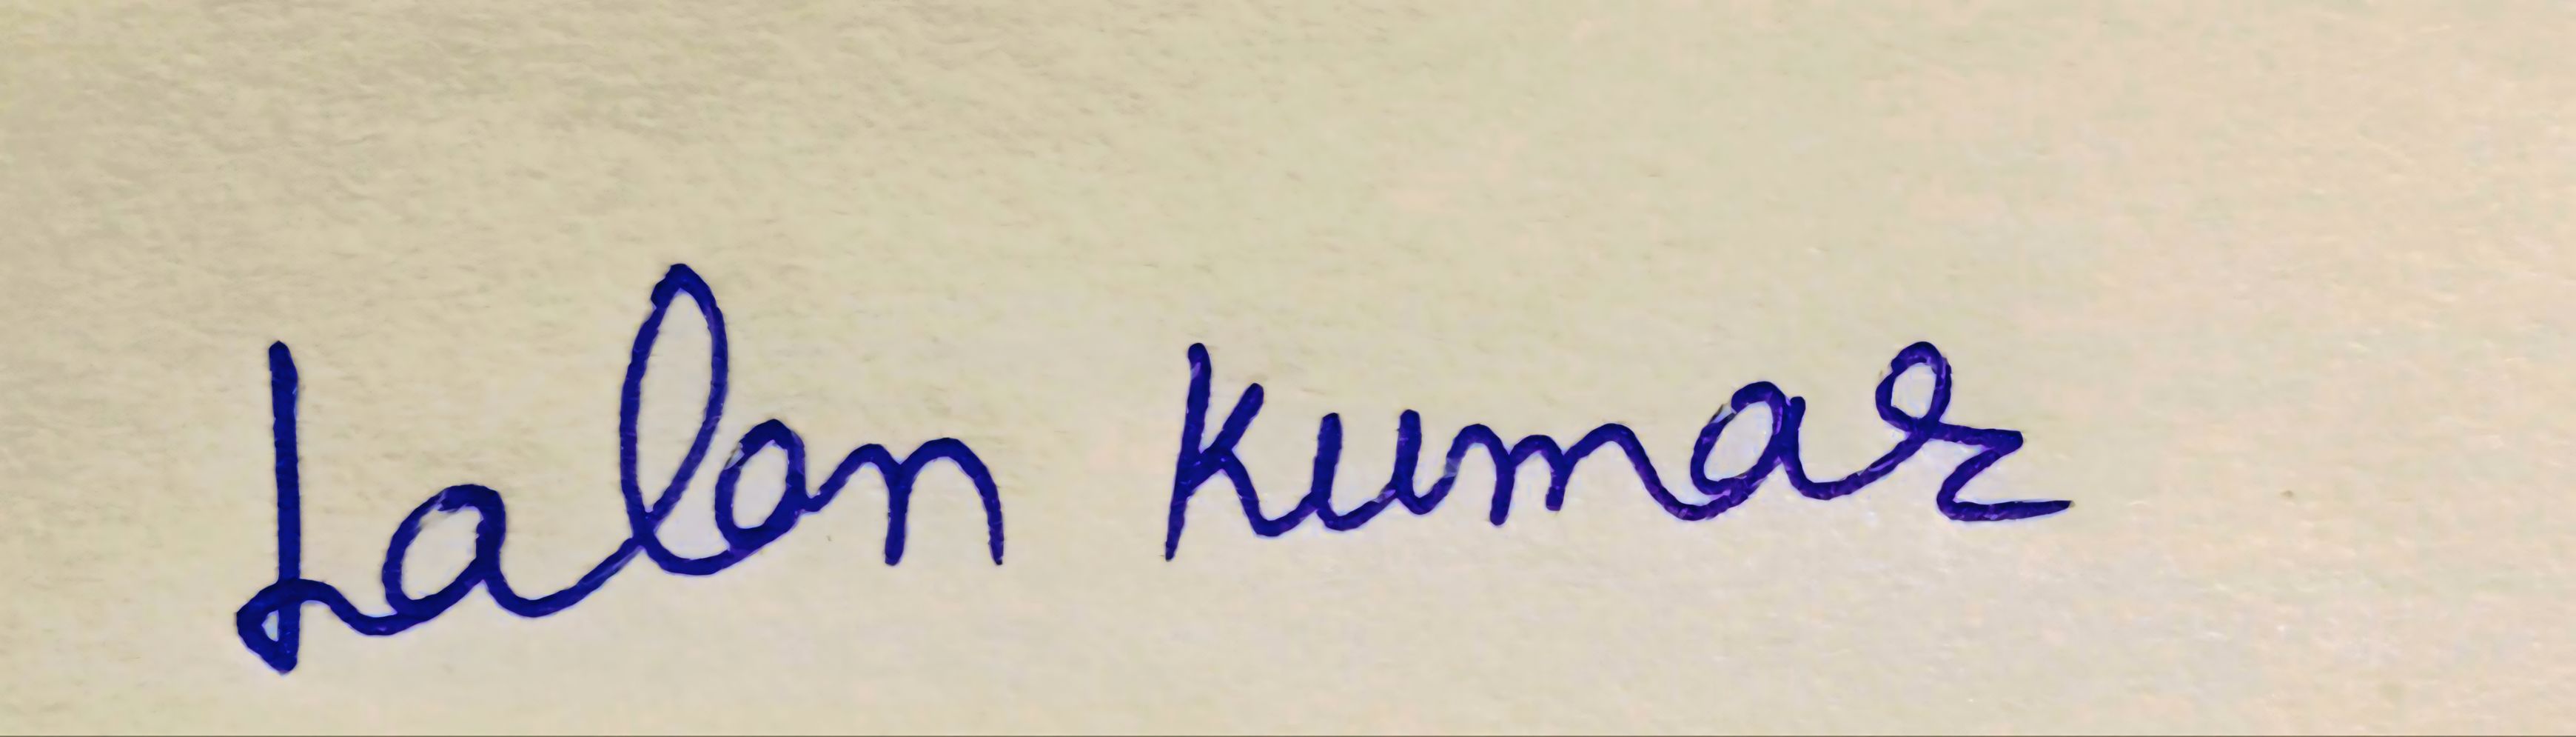 Lalan Kumar